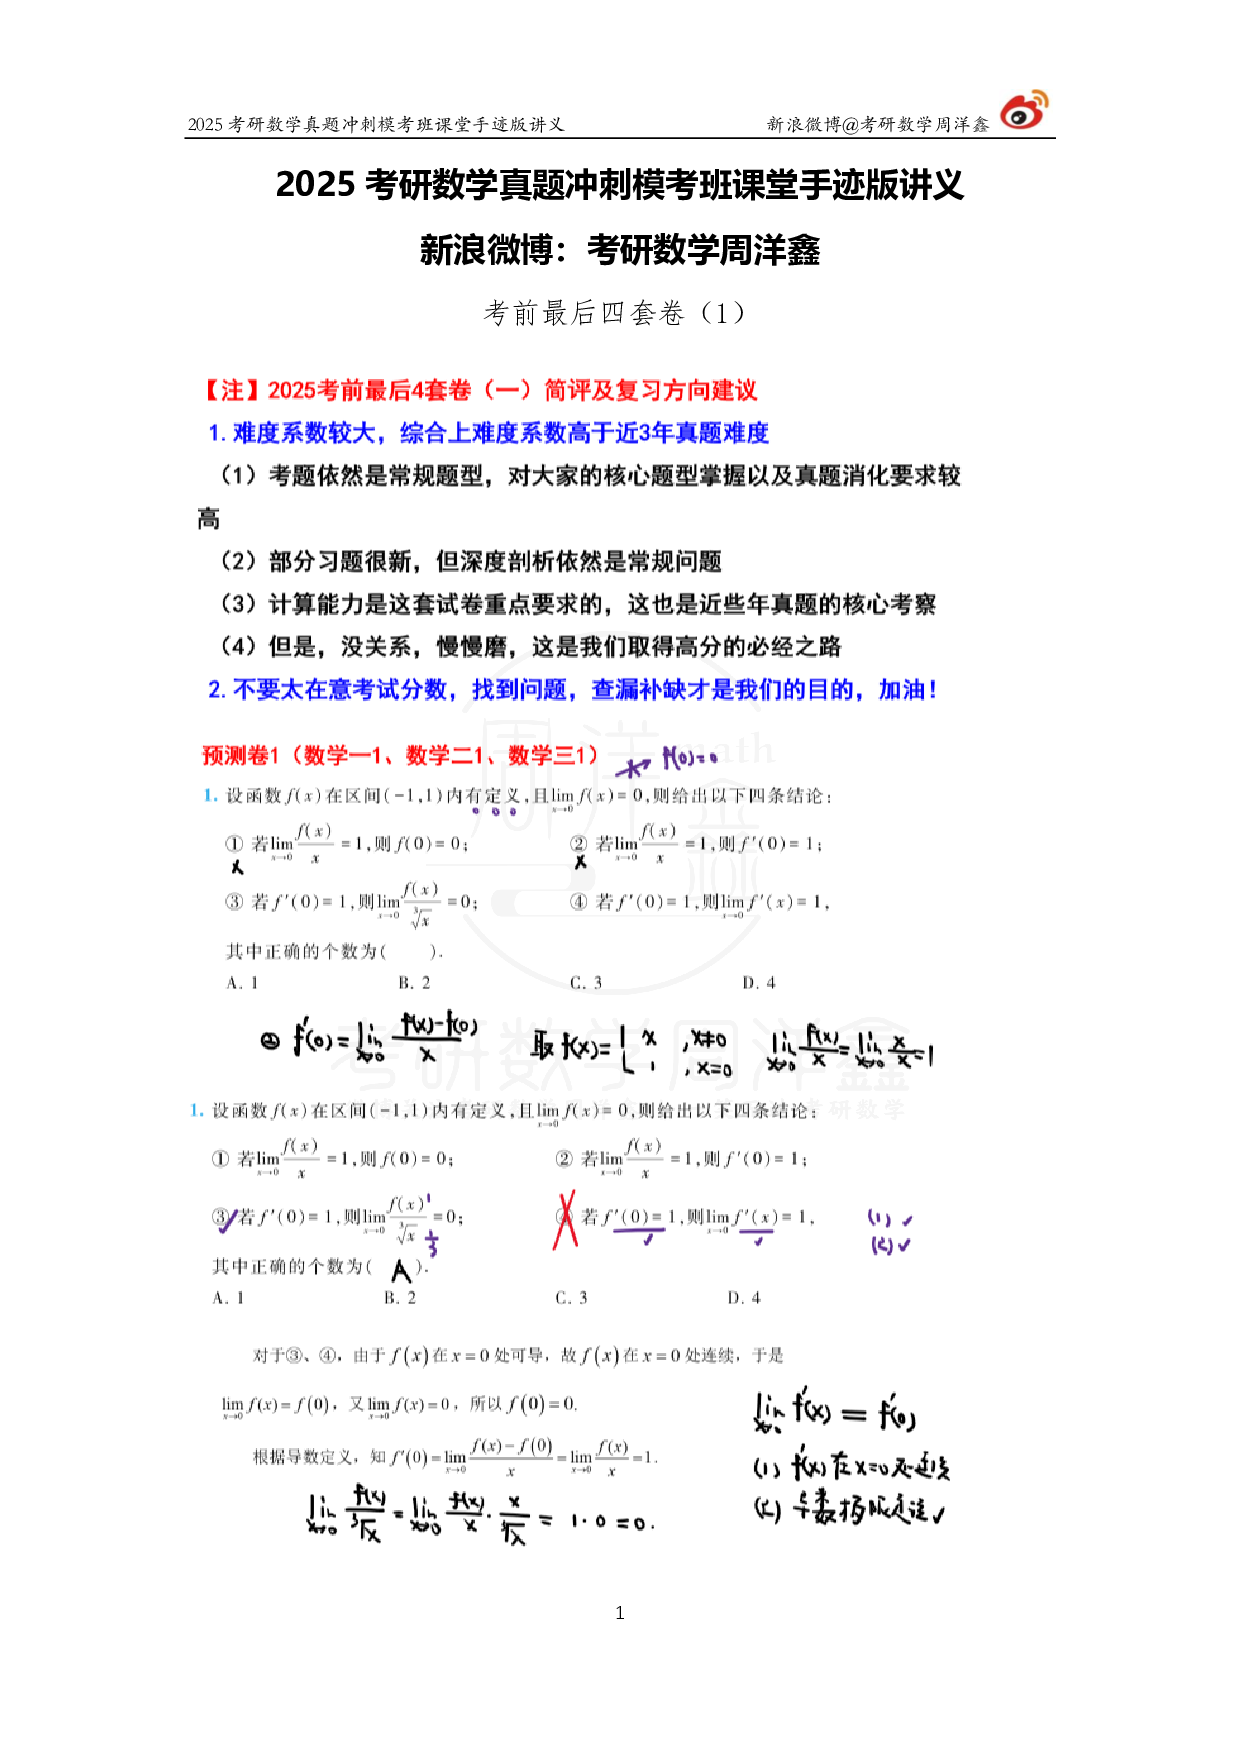 2025 考研数学真题冲刺模考班课堂手迹版讲义 新浪微博@考研数学周洋鑫
2025 考研数学真题冲刺模考班课堂手迹版讲义
新浪微博：考研数学周洋鑫
考前最后四套卷（1）
【注】2025考前最后4套卷（一）简评及复习方向建议
1. 难度系数较大，综合上难度系数高于近3年真题难度
（1）考题依然是常规题型，对大家的核心题型掌握以及真题消化要求较
高
（2）部分习题很新，但深度剖析依然是常规问题
（3）计算能力是这套试卷重点要求的，这也是近些年真题的核心考察
（4）但是，没关系，慢慢磨，这是我们取得高分的必经之路
2. 不要太在意考试分数，找到问题，查漏补缺才是我们的目的，加油！
预测卷1（数学一1、数学二1、数学三1） f(0)=0
1. 设函数 f(x) 在区间(-1,1)内有定义,且lim_{x→0} f(x)=0,则给出以下四条结论:
① 若lim_{x→0} f(x)/x =1,则 f(0)=0; ② 若lim_{x→0} f(x)/x =1,则 f'(0)=1;
x x
③ 若 f'(0)=1,则lim_{x→0} f(x)/∛x =0; ④ 若 f'(0)=1,则lim_{x→0} f'(x)=1,
其中正确的个数为( ).
A. 1 B. 2 C. 3 D. 4
② f'(0)=lim_{x→0} (f(x)-f(0))/x 取 f(x)={x, x≠0; 1, x=0 lim_{x→0} f(x)/x = lim_{x→0} x/x =1
1. 设函数 f(x) 在区间(-1,1)内有定义,且lim_{x→0} f(x)=0,则给出以下四条结论:
① 若lim_{x→0} f(x)/x =1,则 f(0)=0; ② 若lim_{x→0} f(x)/x =1,则 f'(0)=1;
③ 若 f'(0)=1,则lim_{x→0} f(x)/∛x =0; 1 1/3 ④ 若 f'(0)=1,则lim_{x→0} f'(x)=1, (1) ✓
(2) ✓
其中正确的个数为( A ).
A. 1 B. 2 C. 3 D. 4
对于③、④，由于 f(x) 在 x=0 处可导，故 f(x) 在 x=0 处连续，于是
lim_{x→0} f(x)=f(0)，又 lim_{x→0} f(x)=0，所以 f(0)=0.
lim_{x→0} f'(x) = f'(0)
根据导数定义，知 f'(0)=lim_{x→0} (f(x)-f(0))/x = lim_{x→0} f(x)/x =1.
(1) f'(x) 在 x=0 处连续
lim_{x→0} f(x)/∛x = lim_{x→0} f(x)/x · x/∛x = 1·0=0.
(2) 导数极限定理 ✓
1